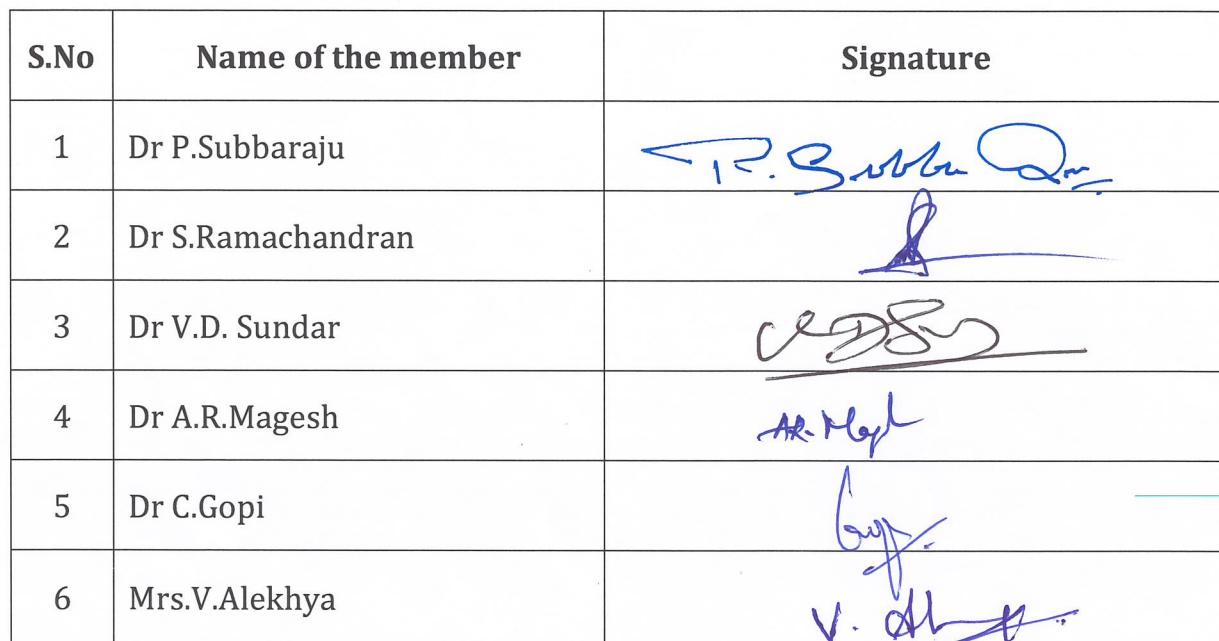 S.No Name of the member Signature
1 Dr P.Subbaraju P. Subba
2 Dr S.Ramachandran
3 Dr V.D. Sundar
4 Dr A.R.Magesh AR. Magesh
5 Dr C.Gopi
6 Mrs.V.Alekhya V.